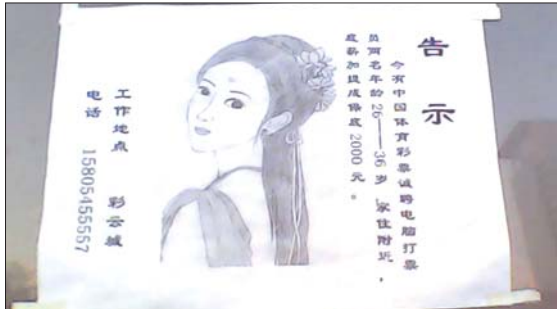 告示
今有中国体育彩票诚聘电脑打票
员两名年龄26——36岁,家住附近,
底薪加提成保底2000元。
工作地点 彩云城
电话 15805455557